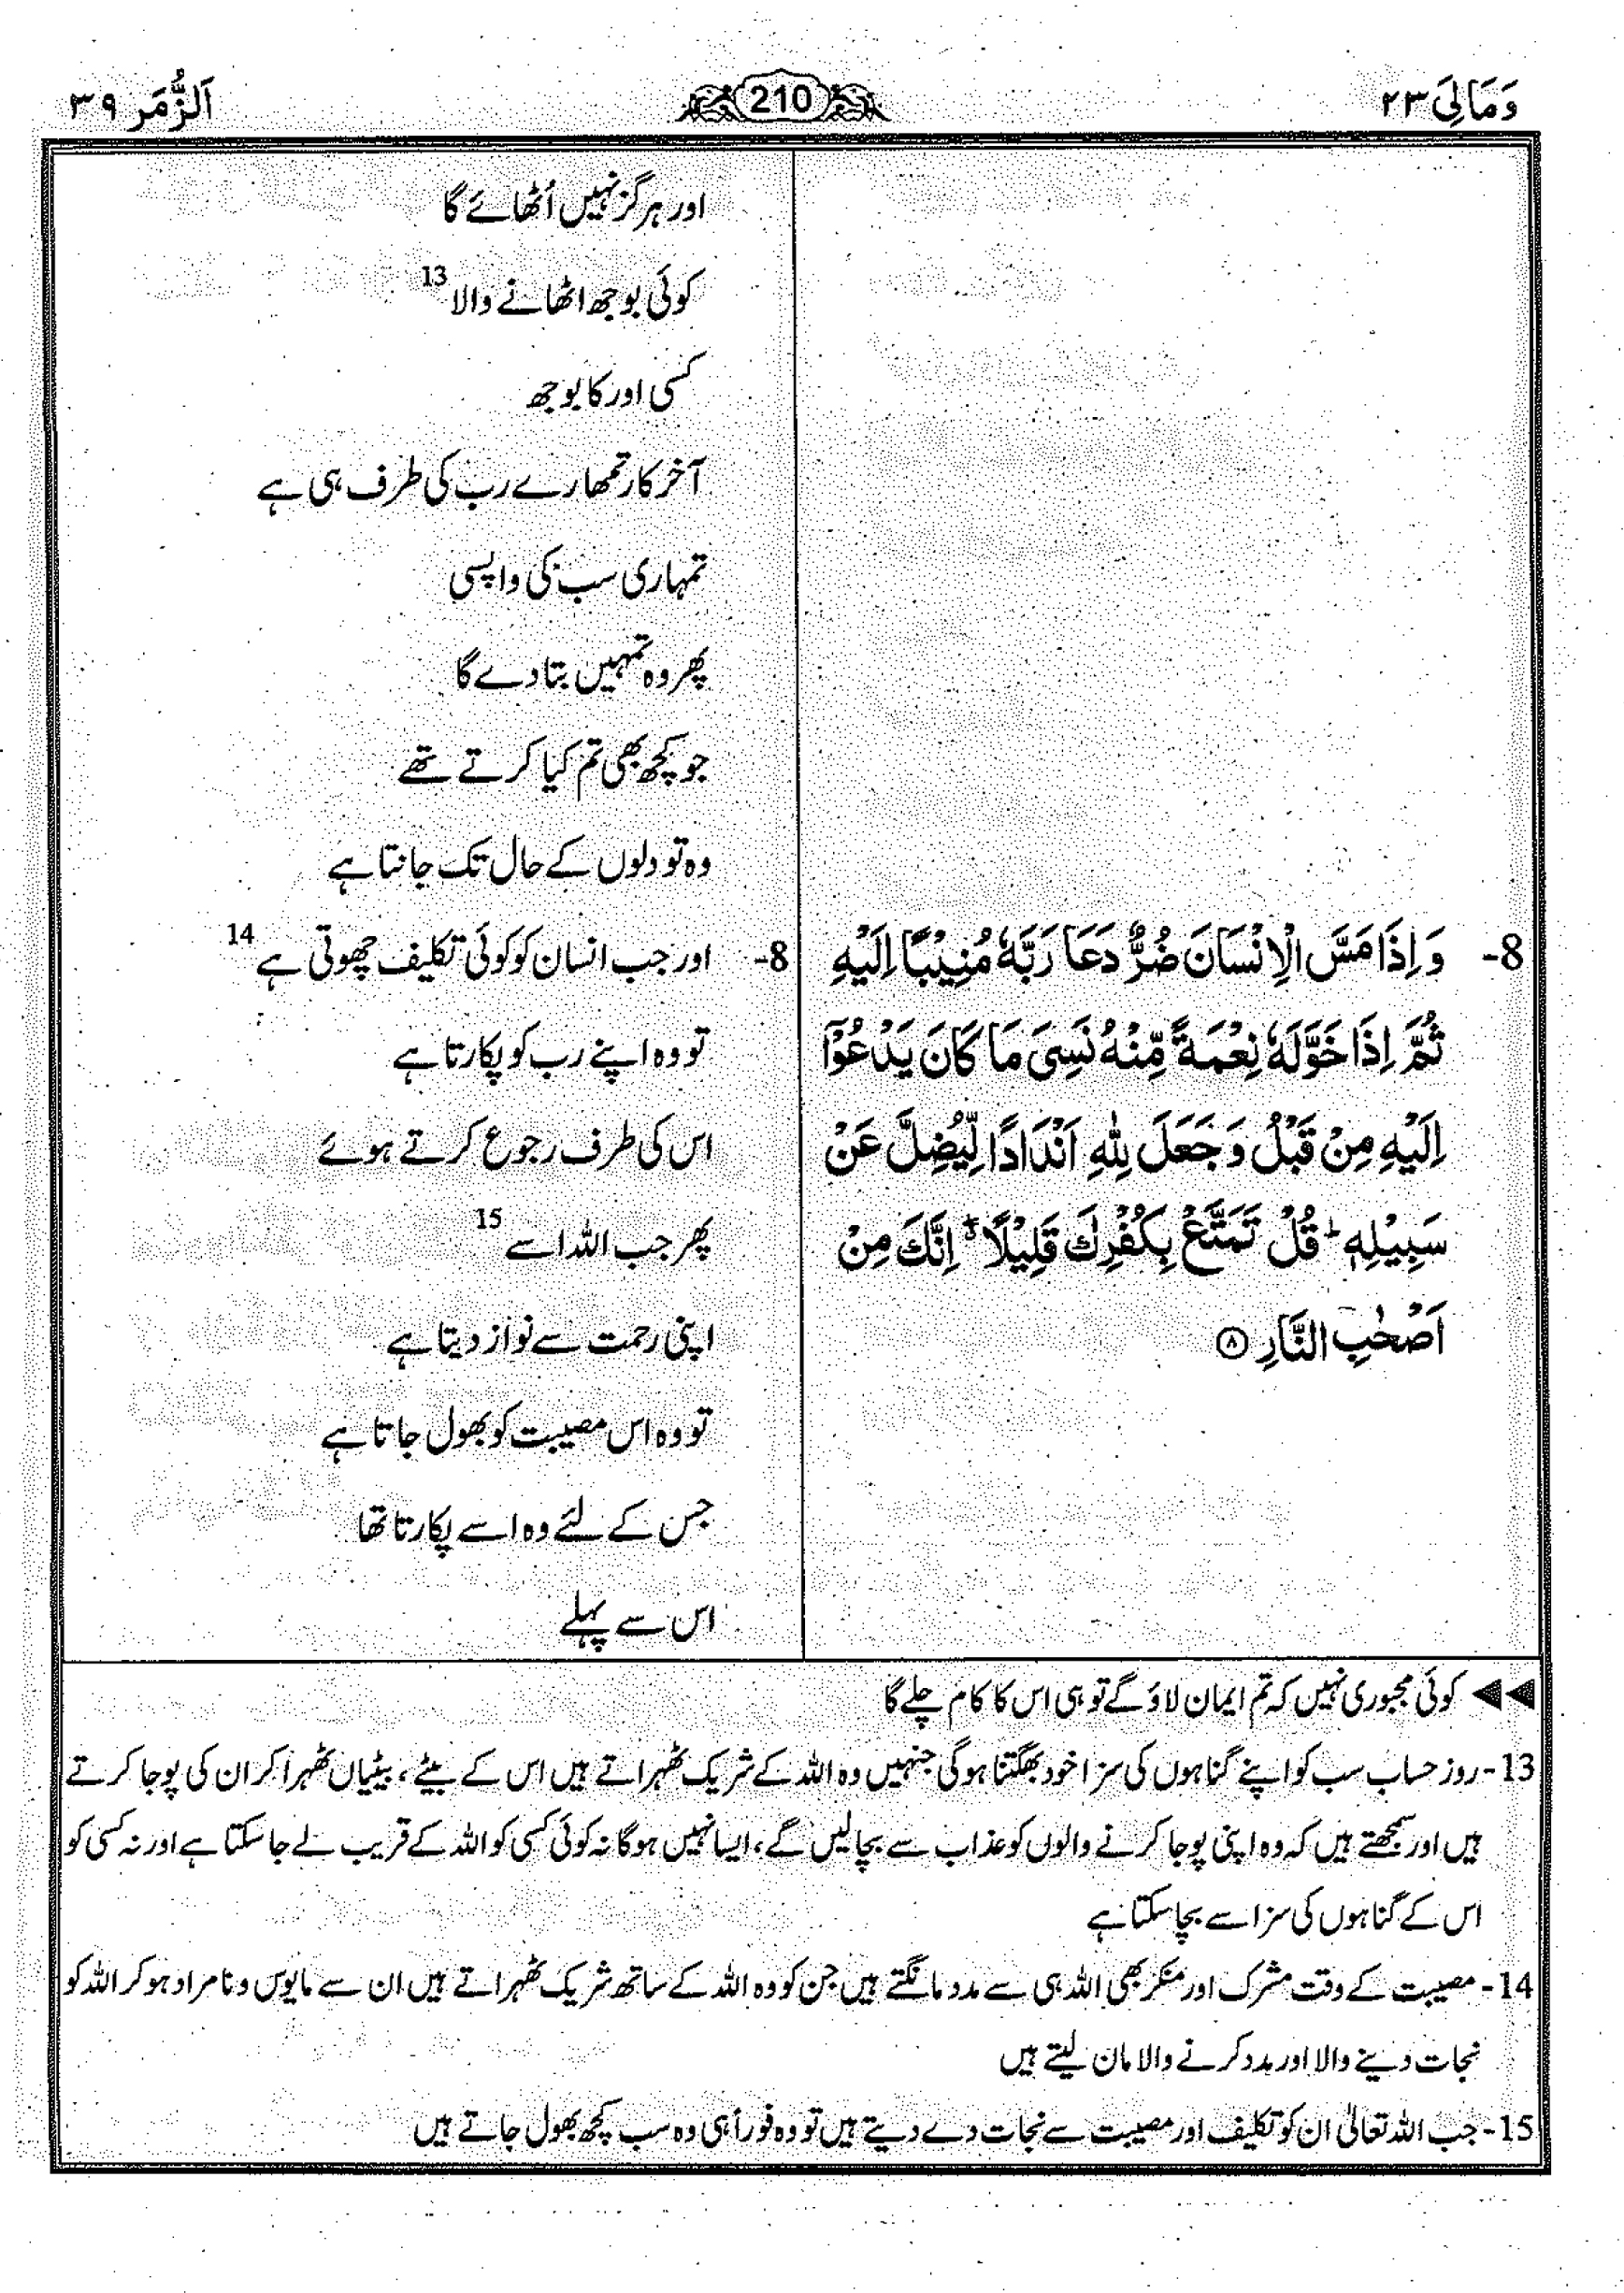 وَمَالِیَ ۲۳
210
اَلزُّمَر ۳۹
اور ہرگز نہیں اُٹھائے گا
کوئی بوجھ اٹھانے والا 13
کسی اور کا بوجھ
آخرکار تمھارے رب کی طرف ہی ہے
تمہاری سب کی واپسی
پھر وہ تمہیں بتا دے گا
جو کچھ بھی تم کیا کرتے تھے
وہ تو دلوں کے حال تک جانتا ہے
8- وَ اِذَا مَسَّ الْاِنْسَانَ ضُرٌّ دَعَا رَبَّهٗ مُنِیْبًا اِلَیْهِ
ثُمَّ اِذَا خَوَّلَهٗ نِعْمَةً مِّنْهُ نَسِیَ مَا كَانَ یَدْعُوْۤا
اِلَیْهِ مِنْ قَبْلُ وَ جَعَلَ لِلّٰهِ اَنْدَادًا لِّیُضِلَّ عَنْ
سَبِیْلِهٖ ؕ قُلْ تَمَتَّعْ بِكُفْرِكَ قَلِیْلًا ۖۗ اِنَّكَ مِنْ
اَصْحٰبِ النَّارِ ۝۸
8- اور جب انسان کو کوئی تکلیف چھوتی ہے 14
تو وہ اپنے رب کو پکارتا ہے
اس کی طرف رجوع کرتے ہوئے
پھر جب اللہ اسے 15
اپنی رحمت سے نواز دیتا ہے
تو وہ اس مصیبت کو بھول جاتا ہے
جس کے لئے وہ اسے پکارتا تھا
اس سے پہلے
◄◄ کوئی مجبوری نہیں کہ تم ایمان لاؤ گے تو ہی اس کا کام چلے گا
13- روز حساب سب کو اپنے گناہوں کی سزا خود بھگتنا ہوگی جنہیں وہ اللہ کے شریک ٹھہراتے ہیں اس کے بیٹے، بیٹیاں ٹھہرا کر ان کی پوجا کرتے
ہیں اور سمجھتے ہیں کہ وہ اپنی پوجا کرنے والوں کو عذاب سے بچا لیں گے، ایسا نہیں ہوگا نہ کوئی کسی کو اللہ کے قریب لے جا سکتا ہے اور نہ کسی کو
اس کے گناہوں کی سزا سے بچا سکتا ہے
14- مصیبت کے وقت مشرک اور منکر بھی اللہ ہی سے مدد مانگتے ہیں جن کو وہ اللہ کے ساتھ شریک ٹھہراتے ہیں ان سے مایوس و نامراد ہو کر اللہ کو
نجات دینے والا اور مدد کرنے والا مان لیتے ہیں
15- جب اللہ تعالیٰ ان کو تکلیف اور مصیبت سے نجات دے دیتے ہیں تو وہ فوراً ہی وہ سب کچھ بھول جاتے ہیں